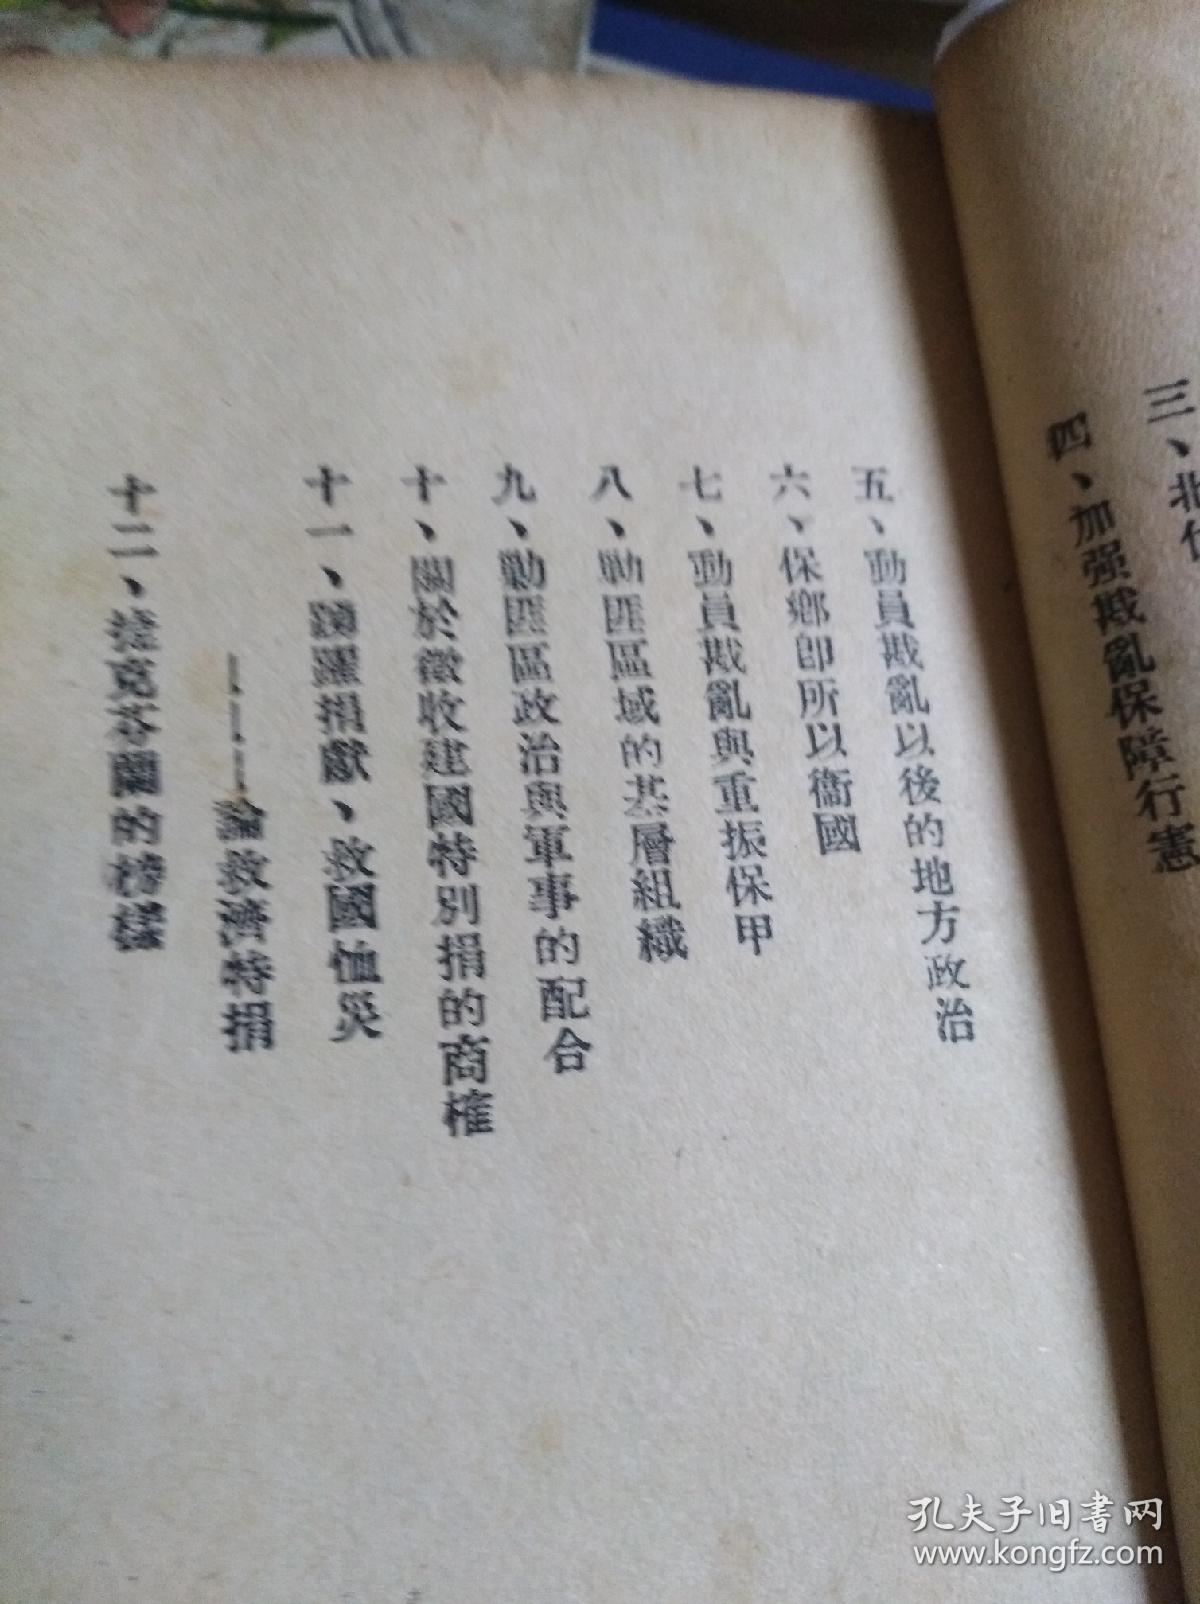 三、非
四、加强戡亂保障行憲
五、動員戡亂以後的地方政治
六、保鄉即所以衞國
七、動員戡亂與重振保甲
八、勦匪區域的基層組織
九、勦匪區政治與軍事的配合
十、關於徵收建國特別捐的商榷
十一、踴躍捐獻、救國恤災
———論救濟特捐
十二、捷克芬蘭的榜樣
孔夫子旧书网
www.kongfz.com